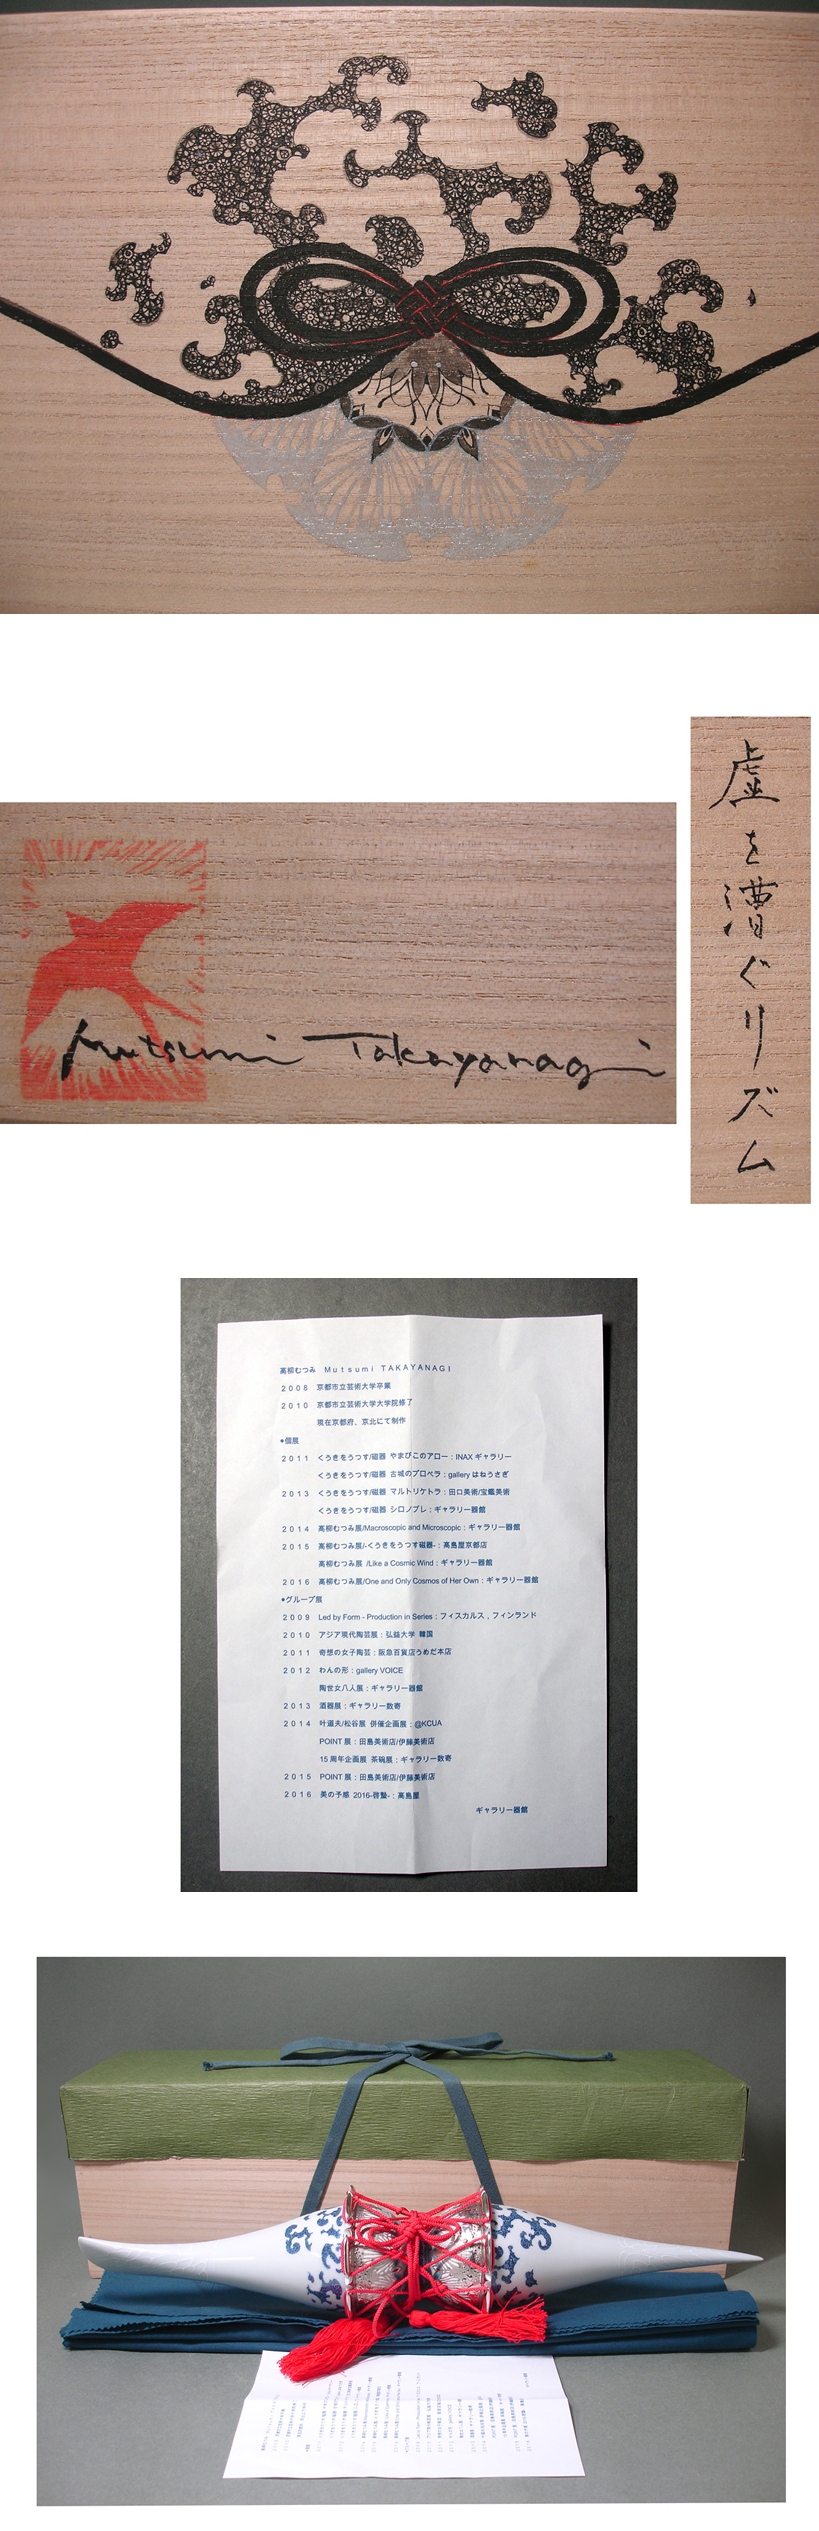 Mutsumi Takayanagi
虚を濳ぐリズム
高柳むつみ Mutsumi TAKAYANAGI
2008 京都市立芸術大学卒業
2010 京都市立芸術大学大学院修了
現在京都府、京北にて制作
●個展
2011 くうきをうつす/磁器 やまびこのアロー：INAXギャラリー
くうきをうつす/磁器 古城のプロペラ：gallery はねうさぎ
2013 くうきをうつす/磁器 マルトリケトラ：田口美術/宝鑑美術
くうきをうつす/磁器 シロノブレ：ギャラリー器館
2014 高柳むつみ展/Macroscopic and Microscopic：ギャラリー器館
2015 高柳むつみ展/-くうきをうつす磁器-：高島屋京都店
高柳むつみ展 /Like a Cosmic Wind：ギャラリー器館
2016 高柳むつみ展/One and Only Cosmos of Her Own：ギャラリー器館
●グループ展
2009 Led by Form - Production in Series：フィスカルス，フィンランド
2010 アジア現代陶芸展：弘益大学 韓国
2011 奇想の女子陶芸：阪急百貨店うめだ本店
2012 わんの形：gallery VOICE
陶世女八人展：ギャラリー器館
2013 酒器展：ギャラリー数寄
2014 叶道夫/松谷展 併催企画展：@KCUA
POINT 展：田島美術店/伊藤美術店
15 周年企画展 茶碗展：ギャラリー数寄
2015 POINT 展：田島美術店/伊藤美術店
2016 美の予感 2016-啓蟄-：高島屋
ギャラリー器館